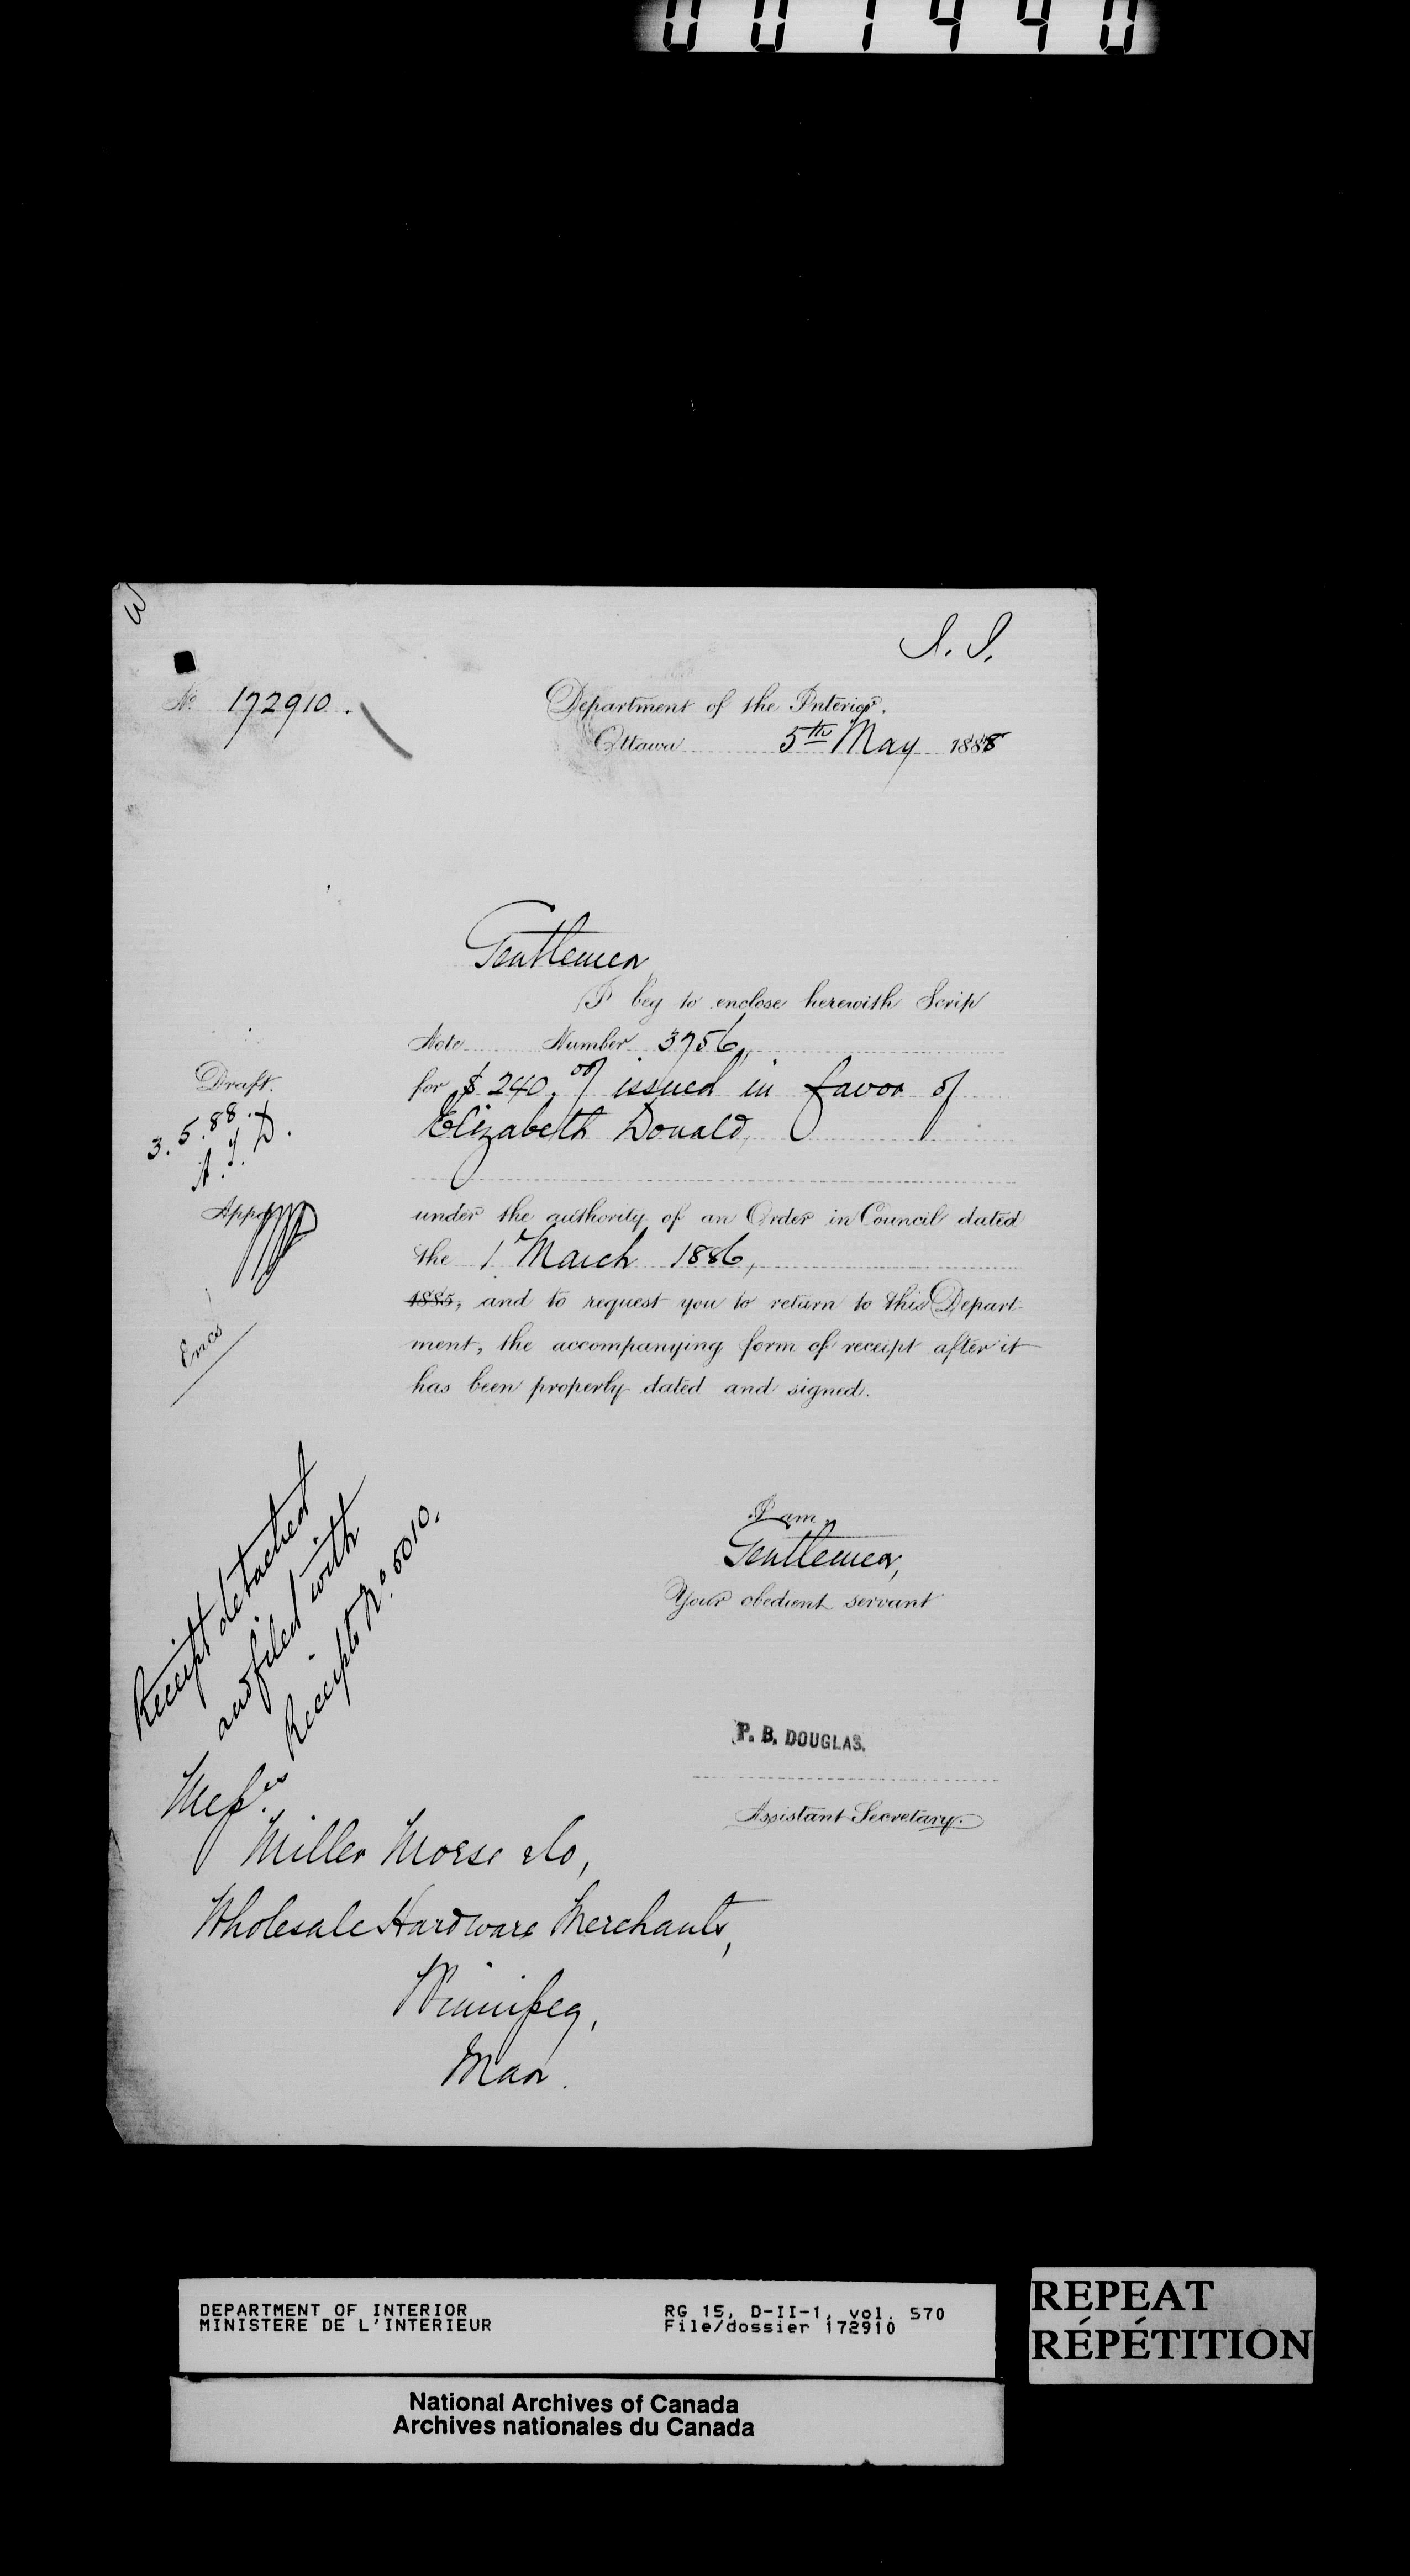 001440
S. S.
No 172910.
Department of the Interior.
Ottawa 5th May 1888
Gentlemen
I beg to enclose herewith Scrip
Note Number 3756,
for $240.00/ issued in favor of
Elizabeth Donald,
under the authority of an Order in Council dated
the 1st March 1886,
1885, and to request you to return to this Depart-
ment, the accompanying form of receipt after it
has been properly dated and signed.
Draft.
3.5.88.
Appd
Encs
I am,
Gentlemen,
Your obedient servant
P. B. DOUGLAS.
Assistant Secretary.
Receipt detached
and filed with
Receipts No. 5010.
Messrs.
Miller Morse & Co,
Wholesale Hardware Merchants,
Winnipeg,
Man.
DEPARTMENT OF INTERIOR
MINISTERE DE L'INTERIEUR
RG 15, D-II-1, vol. 570
File/dossier 172910
REPEAT
RÉPÉTITION
National Archives of Canada
Archives nationales du Canada